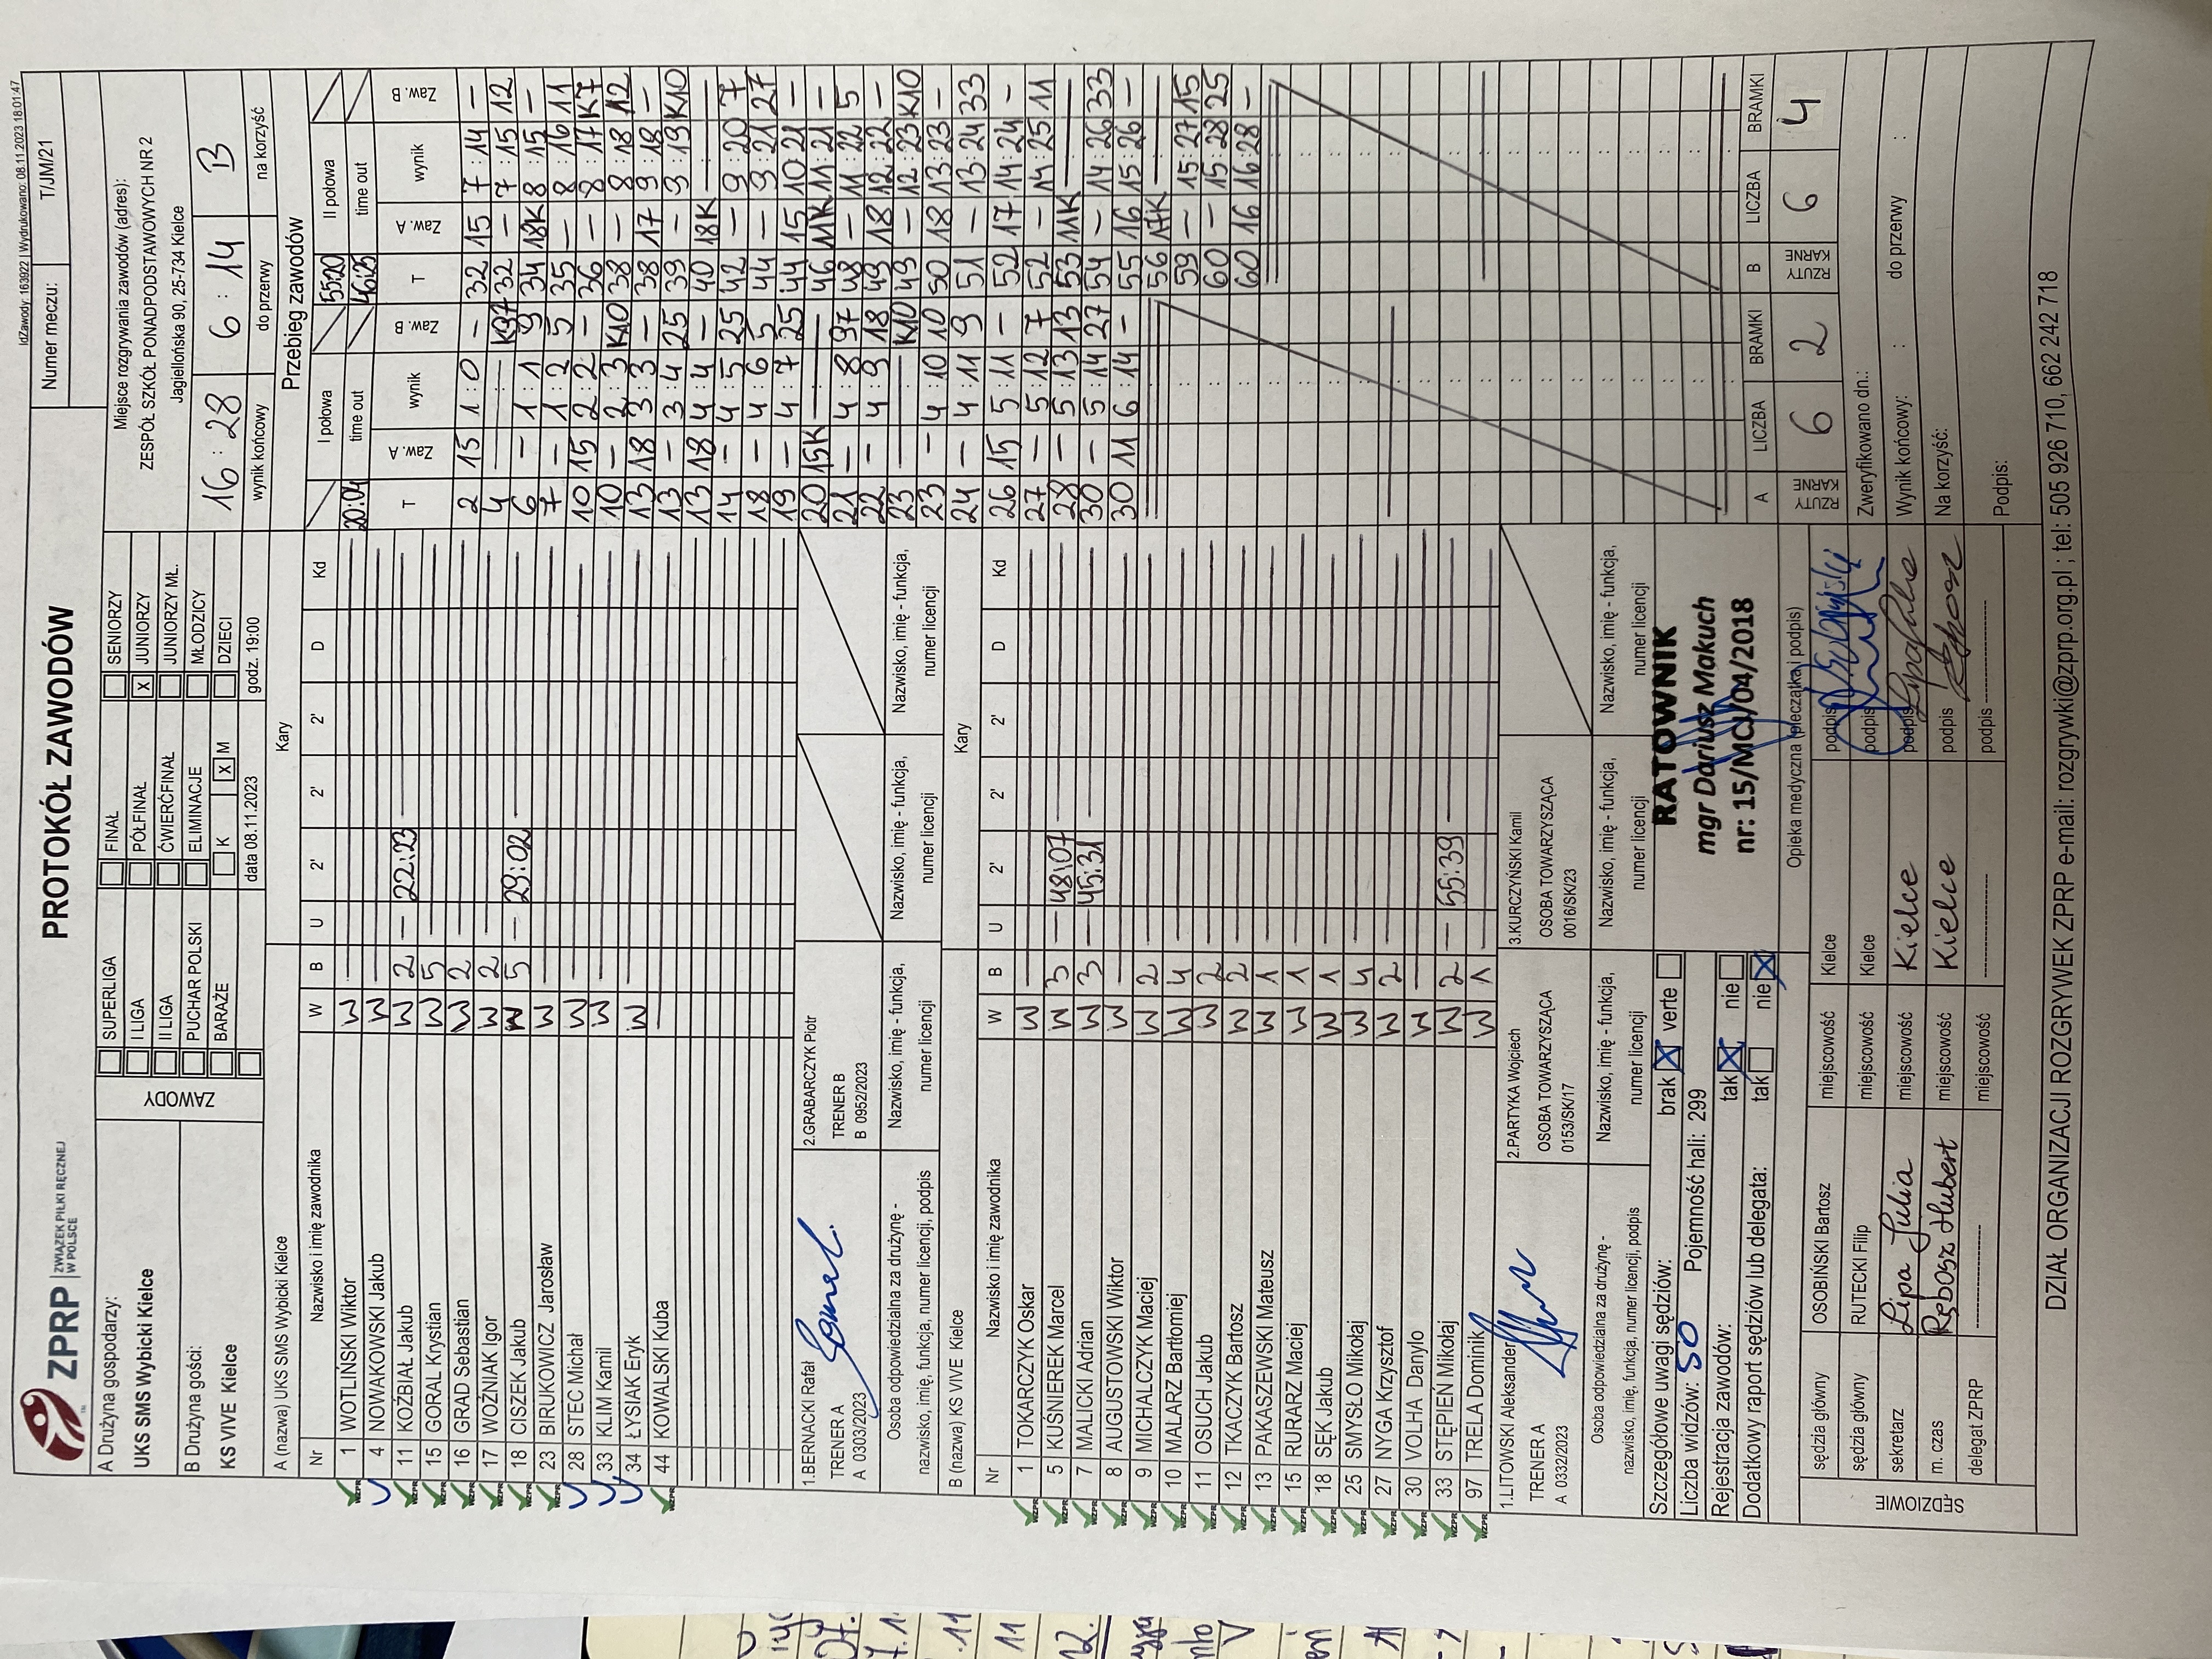 IdZawody: 163922 | Wydrukowano: 08.11.2023 18:01:47
ZPRP ZWIĄZEK PIŁKI RĘCZNEJ W POLSCE
PROTOKÓŁ ZAWODÓW
Numer meczu: T/JM/21
A Drużyna gospodarzy:
UKS SMS Wybicki Kielce
B Drużyna gości:
KS VIVE Kielce
ZAWODY
SUPERLIGA
I LIGA
II LIGA
PUCHAR POLSKI
BARAŻE
FINAŁ
PÓŁFINAŁ
ĆWIERĆFINAŁ
ELIMINACJE
K X M
SENIORZY
X JUNIORZY
JUNIORZY MŁ.
MŁODZICY
DZIECI
data 08.11.2023 godz. 19:00
Miejsce rozgrywania zawodów (adres):
ZESPÓŁ SZKÓŁ PONADPODSTAWOWYCH NR 2
Jagiellońska 90, 25-734 Kielce
16 : 28 6 : 14 B
wynik końcowy do przerwy na korzyść
A (nazwa) UKS SMS Wybicki Kielce Kary
Nr Nazwisko i imię zawodnika W B U 2' 2' 2' D Kd
1 WOTLIŃSKI Wiktor W
4 NOWAKOWSKI Jakub W
11 KOŹBIAŁ Jakub W 2 — 22:23
15 GORAL Krystian W 5
16 GRAD Sebastian W 2
17 WOŹNIAK Igor W 2
18 CISZEK Jakub W 5 — 29:02
23 BIRUKOWICZ Jarosław W
28 STEC Michał W
33 KLIM Kamil W
34 ŁYSIAK Eryk W
44 KOWALSKI Kuba
1.BERNACKI Rafał
TRENER A
A 0303/2023
2.GRABARCZYK Piotr
TRENER B
B 0952/2023
Osoba odpowiedzialna za drużynę -
nazwisko, imię, funkcja, numer licencji, podpis
Nazwisko, imię - funkcja,
numer licencji
Nazwisko, imię - funkcja,
numer licencji
Nazwisko, imię - funkcja,
numer licencji
B (nazwa) KS VIVE Kielce Kary
Nr Nazwisko i imię zawodnika W B U 2' 2' 2' D Kd
1 TOKARCZYK Oskar W
5 KUŚNIEREK Marcel W 3 — 48:07
7 MALICKI Adrian W 3 — 45:31
8 AUGUSTOWSKI Wiktor W
9 MICHALCZYK Maciej W 2
10 MALARZ Bartłomiej W 4
11 OSUCH Jakub W 2
12 TKACZYK Bartosz W 2
13 PAKASZEWSKI Mateusz W 1
15 RURARZ Maciej W 1
18 SĘK Jakub W 1
25 SMYSŁO Mikołaj W 4
27 NYGA Krzysztof W 2
30 VOLHA Danylo W
33 STĘPIEŃ Mikołaj W 2 — 55:39
97 TRELA Dominik W 1
1.LITOWSKI Aleksander
TRENER A
A 0332/2023
2.PARTYKA Wojciech
OSOBA TOWARZYSZĄCA
0153/SK/17
3.KURCZYŃSKI Kamil
OSOBA TOWARZYSZĄCA
0016/SK/23
Osoba odpowiedzialna za drużynę -
nazwisko, imię, funkcja, numer licencji, podpis
Nazwisko, imię - funkcja,
numer licencji
Nazwisko, imię - funkcja,
numer licencji
Nazwisko, imię - funkcja,
numer licencji
Szczegółowe uwagi sędziów: brak X verte
Liczba widzów: 50 Pojemność hali: 299
Rejestracja zawodów: tak X nie
Dodatkowy raport sędziów lub delegata: tak nie X
RATOWNIK
mgr Dariusz Makuch
nr: 15/MCJ/04/2018
Opieka medyczna (pieczątka i podpis)
SĘDZIOWIE
sędzia główny OSOBIŃSKI Bartosz miejscowość Kielce podpis
sędzia główny RUTECKI Filip miejscowość Kielce podpis
sekretarz Lipa Julia miejscowość Kielce podpis
m. czas Rębosz Hubert miejscowość Kielce podpis
delegat ZPRP miejscowość podpis
Przebieg zawodów
I połowa II połowa 55:20
time out 20:04 time out 46:25
T Zaw. A wynik Zaw. B T Zaw. A wynik Zaw. B
2 15 1 : 0 — 32 15 7 : 14 —
4 K97 32 — 7 : 15 12
6 — 1 : 1 9 34 18K 8 : 15 —
7 — 1 : 2 5 35 — 8 : 16 11
10 15 2 : 2 — 36 — 8 : 17 K7
10 — 2 : 3 K10 38 — 8 : 18 12
13 18 3 : 3 — 38 17 9 : 18 —
13 — 3 : 4 25 39 — 9 : 19 K10
13 18 4 : 4 — 40 18K
14 — 4 : 5 25 42 — 9 : 20 7
18 — 4 : 6 5 44 — 9 : 21 27
19 — 4 : 7 25 44 15 10 : 21 —
20 15K 46 11K 11 : 21 —
21 — 4 : 8 97 48 — 11 : 22 5
22 — 4 : 9 18 49 18 12 : 22 —
23 K10 49 — 12 : 23 K10
23 — 4 : 10 10 50 18 13 : 23 —
24 — 4 : 11 9 51 — 13 : 24 33
26 15 5 : 11 — 52 17 14 : 24 —
27 — 5 : 12 7 52 — 14 : 25 11
28 — 5 : 13 13 53 11K
30 — 5 : 14 27 54 — 14 : 26 33
30 11 6 : 14 — 55 16 15 : 26 —
56 17K
59 — 15 : 27 15
60 — 15 : 28 25
60 16 16 : 28 —
A LICZBA BRAMKI B LICZBA BRAMKI
RZUTY KARNE 6 2 RZUTY KARNE 6 4
Zweryfikowano dn.:
Wynik końcowy: : do przerwy :
Na korzyść:
Podpis:
DZIAŁ ORGANIZACJI ROZGRYWEK ZPRP e-mail: rozgrywki@zprp.org.pl ; tel: 505 926 710, 662 242 718